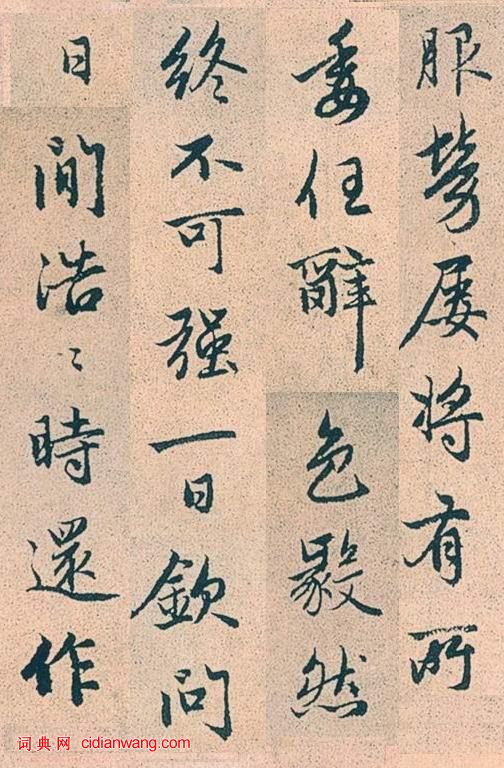 服勞屡将有所
委任辭色毅然
終不可强一日欽问
日间浩〻時還作
词典网 cidianwang.com